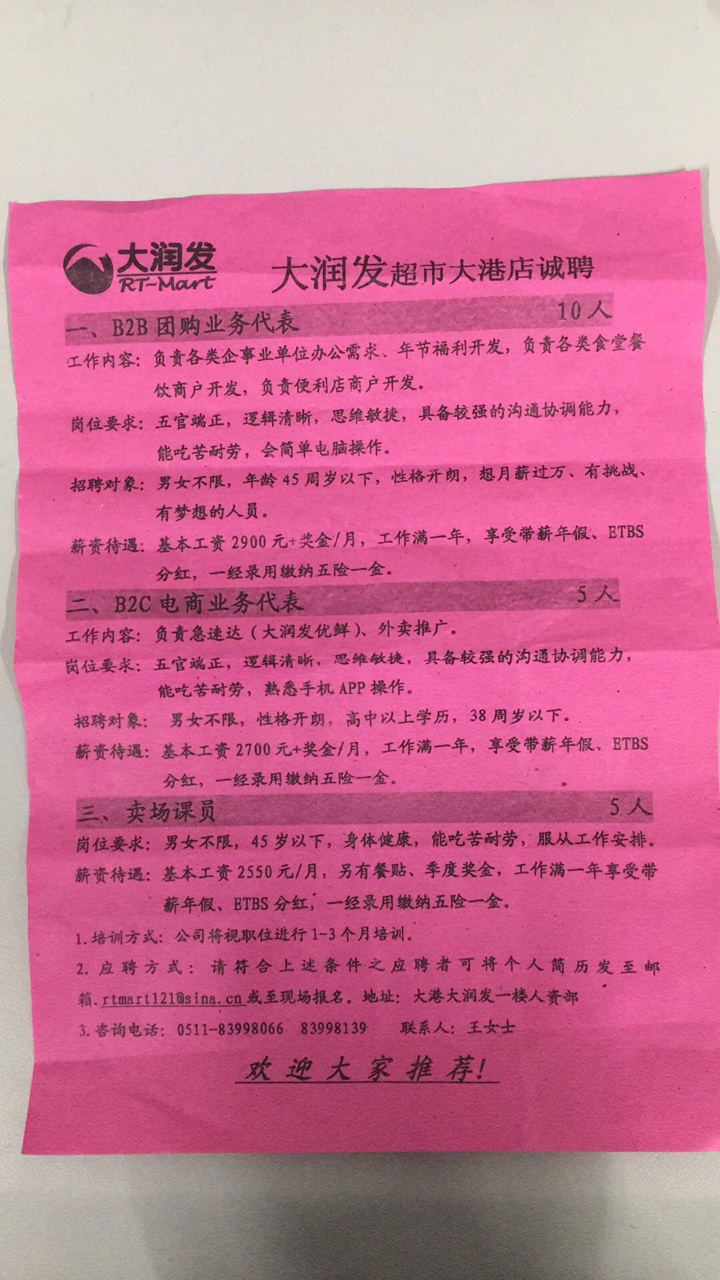 大润发
RT-Mart
大润发超市大港店诚聘
一、B2B 团购业务代表 10 人
工作内容：负责各类企事业单位办公需求、年节福利开发，负责各类食堂餐
饮商户开发，负责便利店商户开发。
岗位要求：五官端正，逻辑清晰，思维敏捷，具备较强的沟通协调能力，
能吃苦耐劳，会简单电脑操作。
招聘对象：男女不限，年龄 45 周岁以下，性格开朗，想月薪过万、有挑战、
有梦想的人员。
薪资待遇：基本工资 2900 元+奖金/月，工作满一年，享受带薪年假、ETBS
分红，一经录用缴纳五险一金。
二、B2C 电商业务代表 5 人
工作内容：负责急速达（大润发优鲜）、外卖推广。
岗位要求：五官端正，逻辑清晰，思维敏捷，具备较强的沟通协调能力，
能吃苦耐劳，熟悉手机 APP 操作。
招聘对象： 男女不限，性格开朗，高中以上学历，38 周岁以下。
薪资待遇：基本工资 2700 元+奖金/月，工作满一年，享受带薪年假、ETBS
分红，一经录用缴纳五险一金。
三、卖场课员 5 人
岗位要求：男女不限，45 岁以下，身体健康，能吃苦耐劳，服从工作安排。
薪资待遇：基本工资 2550 元/月，另有餐贴、季度奖金，工作满一年享受带
薪年假、ETBS 分红，一经录用缴纳五险一金。
1.培训方式：公司将视职位进行 1-3 个月培训。
2.应聘方式：请符合上述条件之应聘者可将个人简历发至邮
箱.rtmart121@sina.cn 或至现场报名。地址：大港大润发一楼人资部
3.咨询电话：0511-83998066 83998139 联系人：王女士
欢迎大家推荐!